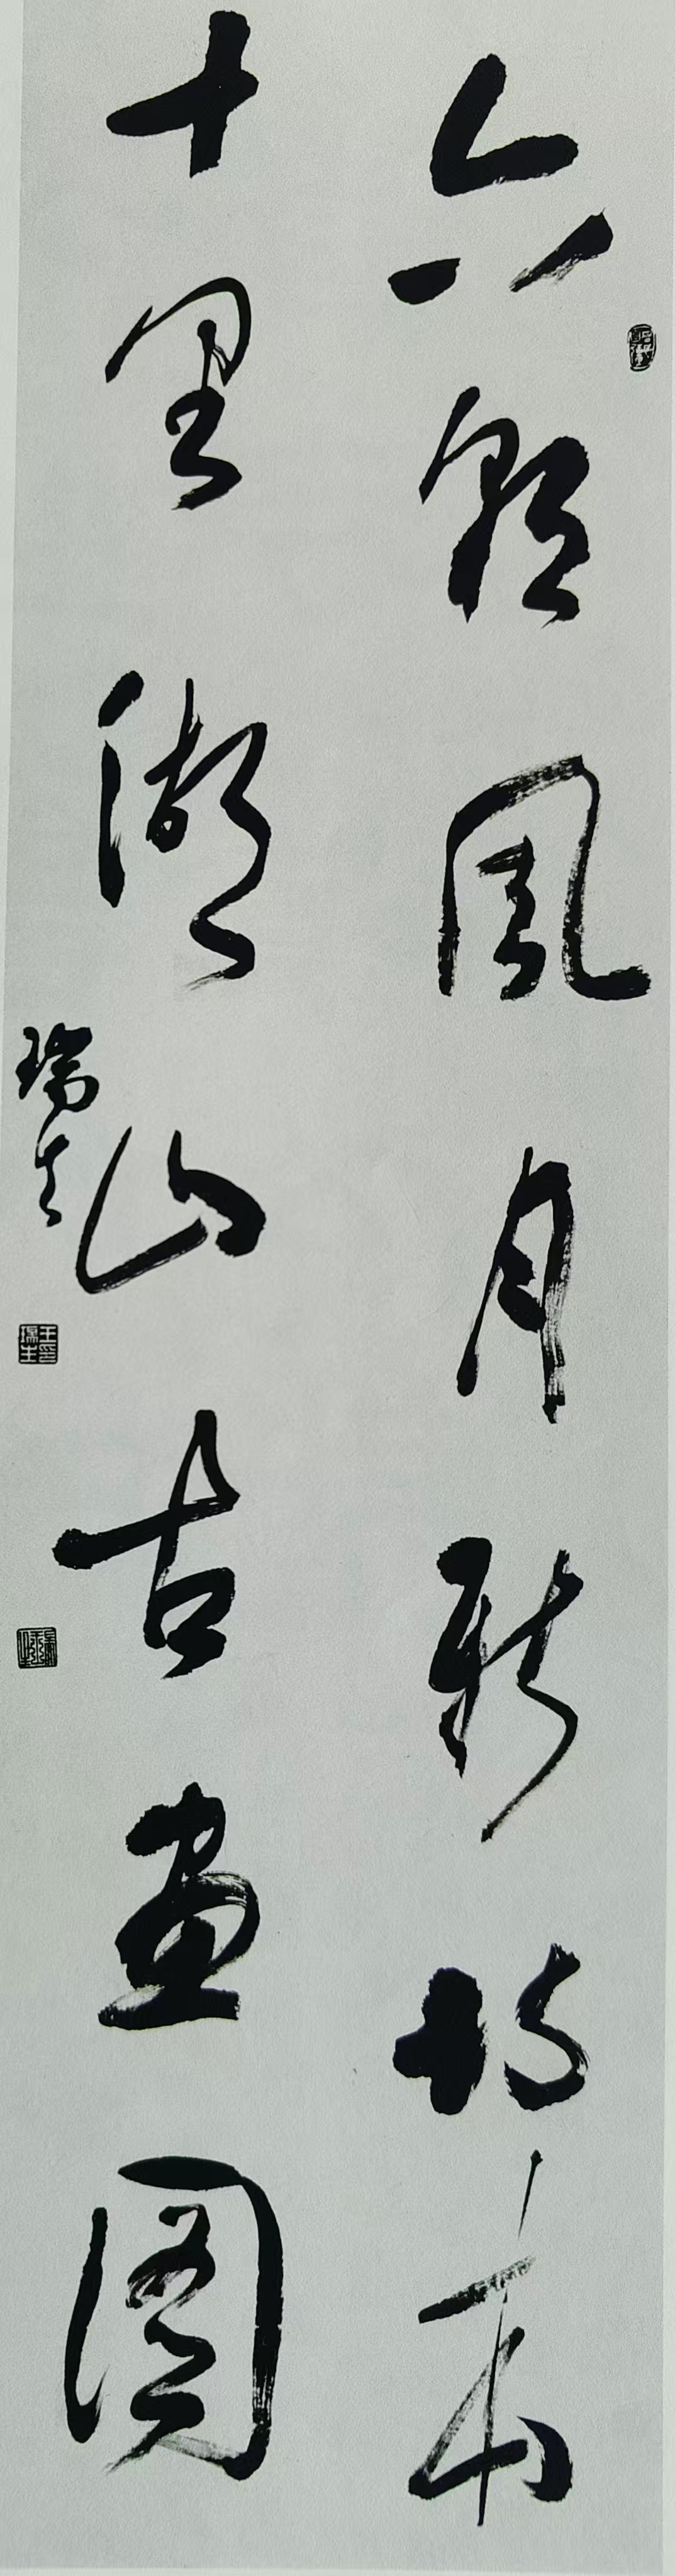 六朝風月新詩本
十里湖山古畫圖
瑞生
王印瑞生